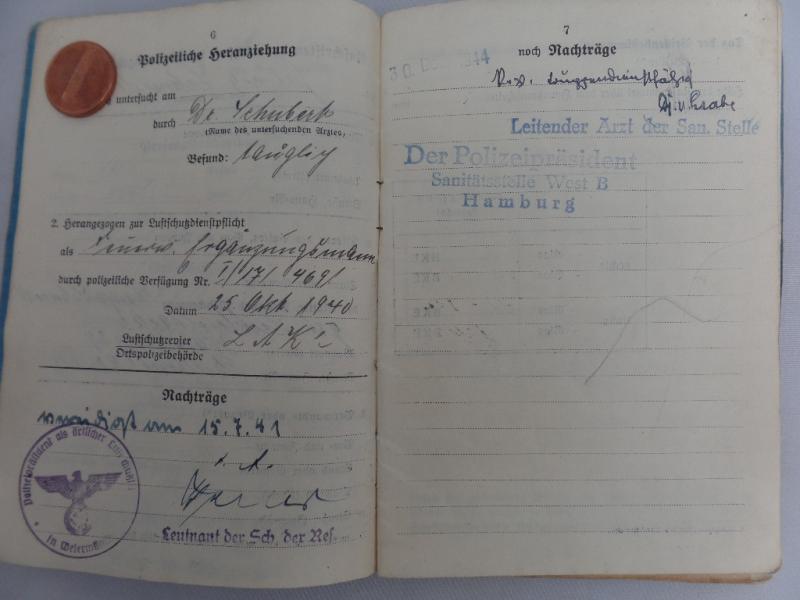 6
Polizeiliche Heranziehung
untersucht am
durch Dr. Schubert
(Name des untersuchenden Arztes)
Befund: tauglich
2. Herangezogen zur Luftschutzdienstpflicht
als Feuerw. Ergänzungsmann
durch polizeiliche Verfügung Nr. I/17/ 469/
Datum 25. Okt. 1940
Luftschutzrevier
Ortspolizeibehörde
Nachträge
vereidigt am 15.7.41
Leutnant der Sch. der Res.
7
noch Nachträge
30. 1944
truppendienstfähig
Leitender Arzt der San. Stelle
Der Polizeipräsident
Sanitätsstelle West B
Hamburg